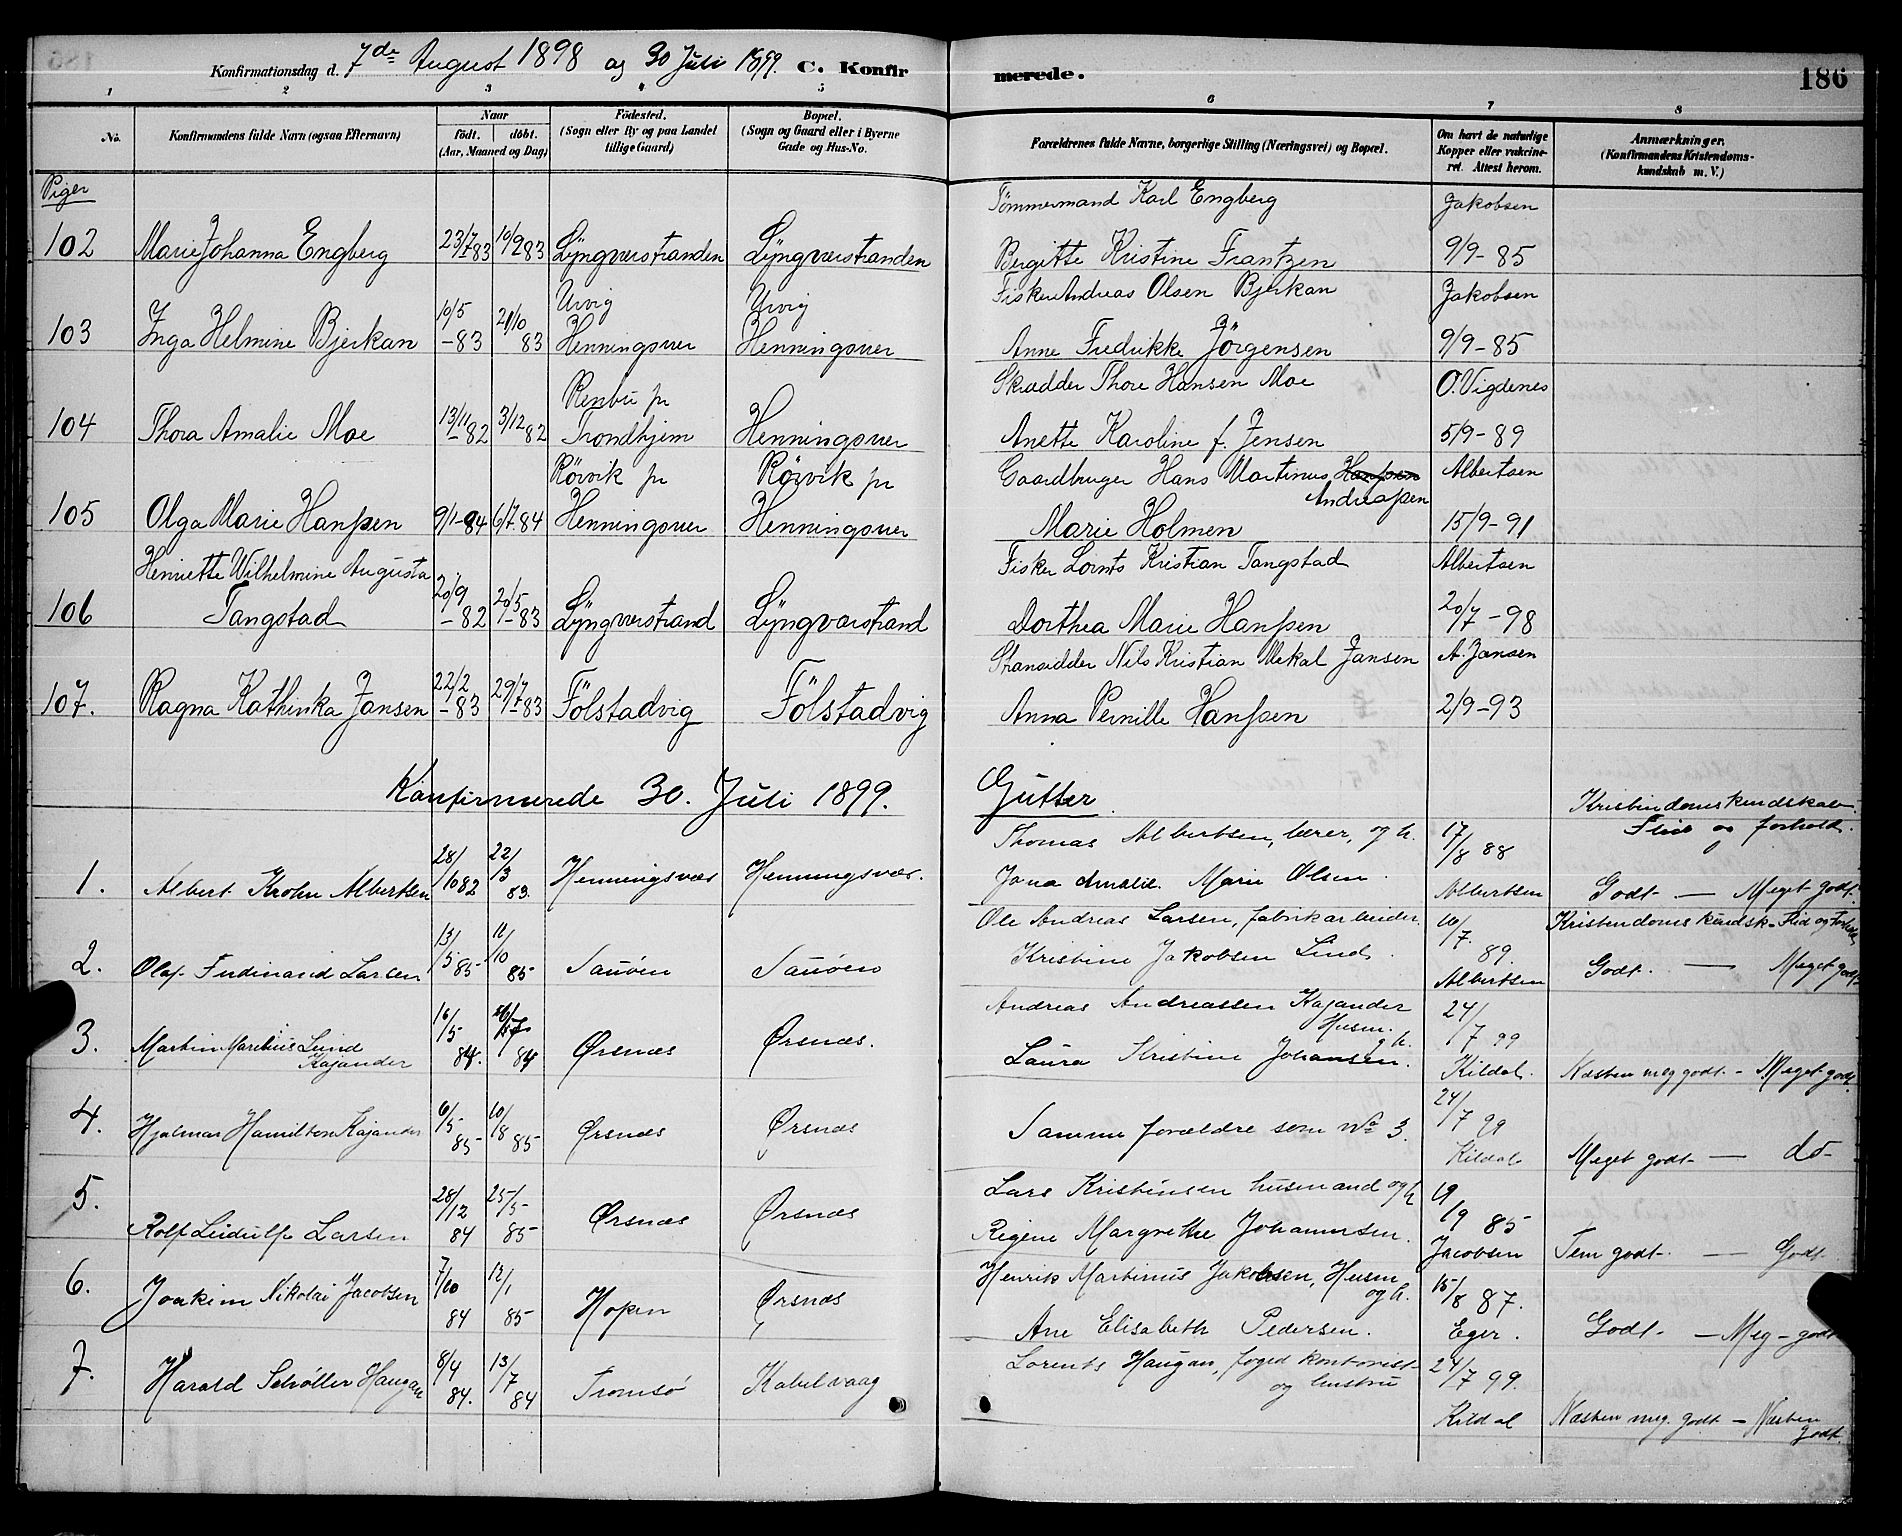 Konfirmationsdag d. 7de August 1898 og 30 Juli 1899. C. Konfirmerede. 186
1 2 3 4 5 6 7 8
No. Konfirmandens fulde Navn (ogsaa Efternavn) Naar födt. döbt. (Aar, Maaned og Dag) Födested. (Sogn eller By og paa Landet tillige Gaard) Bopæl. (Sogn og Gaard eller i Byerne Gade og Hus-No. Forældrenes fulde Navne, borgerlige Stilling (Næringsvei) og Bopæl. Om havt de naturlige Kopper eller vakcineret. Attest herom. Anmærkninger. (Konfirmandens Kristendomskundskab m. V.)
Piger
Tömmermand Karl Engberg Jakobsen
102 Marie Johanna Engberg 23/7 83 10/9 83 Lyngværstranden Lyngværstranden Bergitte Kristine Frantzen 9/9-85
Urvig Urvig Fisker Andreas Olsen Bjerkan Jakobsen
103 Inga Helmine Bjerkan 10/5-83 21/10 83 Henningsvær Henningsvær Anne Fredrikke Jörgensen 9/9-85
Renbu pr Skrædder Thore Hansen Moe O. Vigdenes
104 Thora Amalie Moe 13/11-82 3/12 82 Trondhjem Henningsvær Anette Karoline f. Jensen 5/9-89
Rörvik pr Rörvik pr Gaardbruger Hans Martinus Hanssen Albertsen
Andreassen
105 Olga Marie Hanssen 9/1-84 6/7 84 Henningsvær Henningsvær Marie Holmen 15/9-91
Henriette Wilhelmine Augusta Fisker Lornts Kristian Tangstad Albertsen
106 Tangstad 20/9-82 20/5-83 Lyngværstrand Lyngværstrand Dorthea Marie Hanssen 20/7-98
Strandsidder Nils Kristian Mekal Jansen A. Jansen
107. Ragna Kathinka Jansen 22/2-83 29/7-83 Fölstadvig Fölstadvig Anna Pernille Hanssen 2/9-93
Konfirmerede 30. Juli 1899. Gutter.
Kristendomskundskab
Flid og forhold.
Thomas Albertsen, lærer, og h. 17/8 88
1. Albert Krohn Albertsen 28/10 82 22/3 83. Henningsvær Henningsvær. Jona Amalie Marie Olsen. Albertsen Godt. — Meget godt.
Ole Andreas Larsen, fabrikarbeider. 10/7. 89. Kristendomskundsk. Flid og Forhold
2. Olaf Ferdinand Larsen 13/5 85 11/10 85 Sauöen Sauöen Kristine Jakobsen Lind. Albertsen Godt. — Meget godt.
Andreas Andreassen Kajander 24/7 99
Husm. og h.
3. Martin Marelius Lund Kajander 16/5 84. 84 Ørsnæs Ørsnæs. Laura Kristine Johansen. Kildal. Næsten meg godt. - Meget godt.
4. Hjalmar Hamilton Kajander 6/5 85 10/8 85 Ørsnæs Ørsnæs Samme forældre som No 3. 24/7 99 Kildal Meget godt — do
Lars Kristensen husmand og h 19/9 85
5. Rolf Leidulf Larsen 28/12 84 25/5 85 Ørsnæs Ørsnæs Regine Margrethe Johannesen. Jacobsen Tem godt. — Godt
Henrik Martinus Jakobsen, Husm og h. 15/8 87.
6. Joakim Nikolai Jacobsen 7/10 84 12/1 85 Hopen Ørsnæs Ane Elisabeth Pedersen. Eger. Godt. — Meg - godt
7. Harald Schøller Haugan 8/4 84. 13/7 84 Tromsø Kabelvaag Lorents Haugan, foged kontorist og hustru 24/7 99. Kildal Næsten meg. godt - Næsten godt.